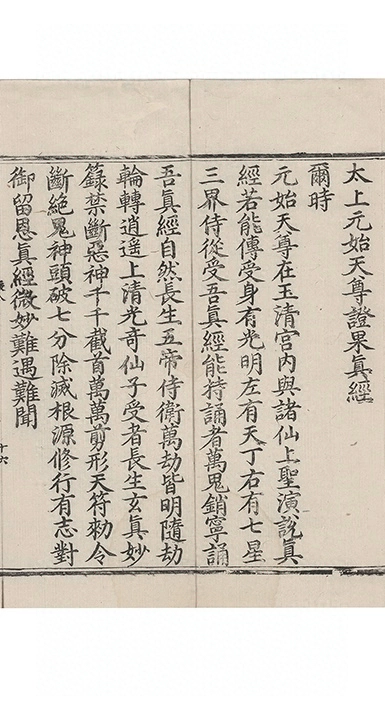 太上元始天尊證果眞經
爾時
元始天尊在玉清宮内與諸仙上聖演說眞
經若能傳受身有光明左有天丁右有七星
三界侍從受吾眞經能持誦者萬鬼銷寧誦
吾眞經自然長生五帝侍衛萬劫皆明隨劫
輪轉逍遥上清光奇仙子受者長生玄真妙
籙禁斷惡神千千截首萬萬剪形天符勑令
斷絕鬼神頭破七分除滅根源修行有志對
御留恩眞經微妙難遇難聞
十六